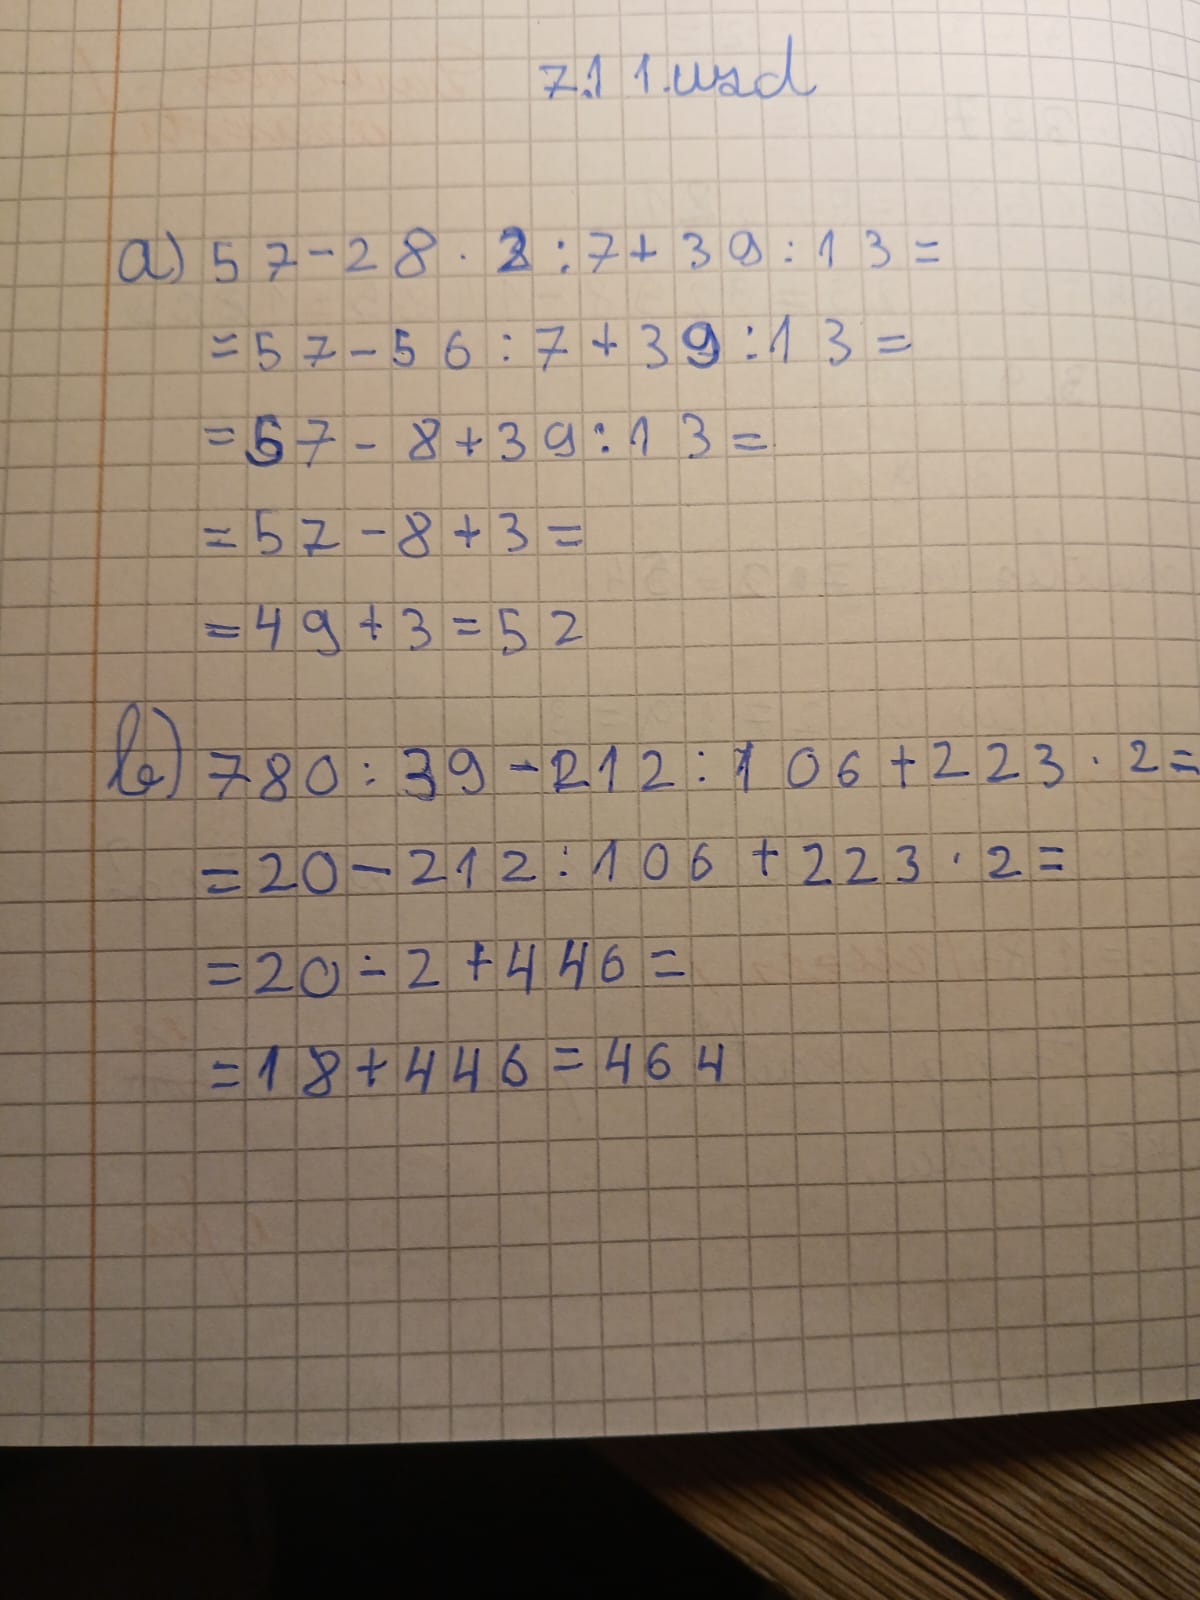 7.1 1.uzd
a) 57-28·2:7+39:13=
=57-56:7+39:13=
=57-8+39:13=
=57-8+3=
=49+3=52
b) 780:39-212:106+223·2=
=20-212:106+223·2=
=20-2+446=
=18+446=464